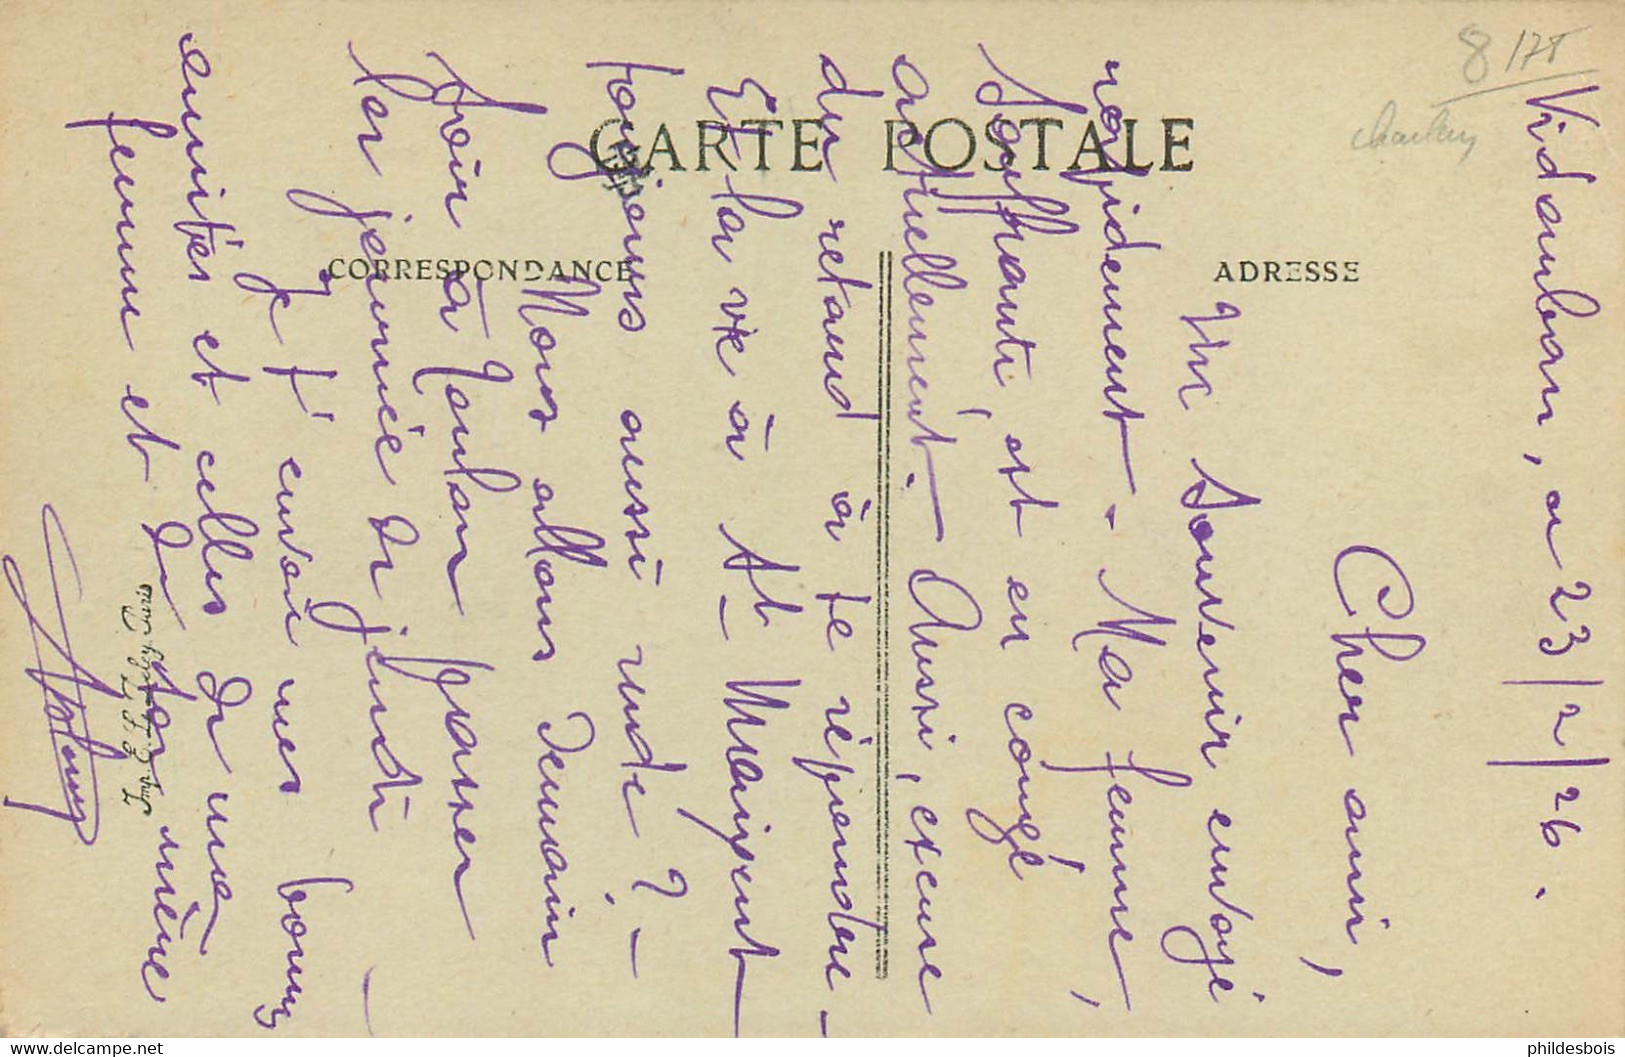 CARTE POSTALE
CORRESPONDANCE
ADRESSE
8 178
Vidauban, a 23/2/26.
Cher ami,
Un souvenir envoyé
rapidement. Ma femme,
souffrante, est en congé
actuellement. Aussi, excuse
du retard à te répondre -
Et la vie à St Maixent
toujours aussi rude ? -
Nous allons demain
soir à Toulon passer
la journée de jeudi -
Je t'envoie mes bonnes
amitiés et celles de ma
femme et de sa mère
phildesbois